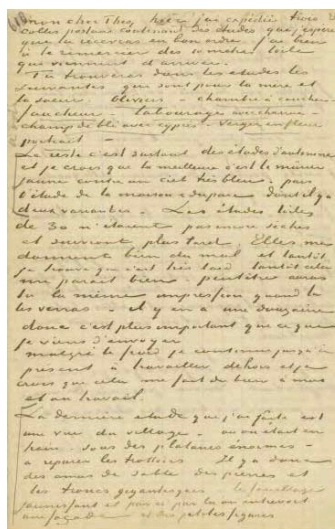 mon cher Theo, hier j'ai expédié trois
colis postaux contenant des études que j'espère
que tu recevras en bon ordre. j'ai bien
à te remercier des 10 metres toile
que viennent d'arriver.
Tu trouveras dans les etudes les
suivantes qui sont pour la mère et
la soeur. oliviers - chambre à coucher
faucheur - labourage avec charrue -
champ de blé avec cyprès - verger en fleur
portrait -
Le reste c'est surtout des études d'automne
et je crois que la meilleure c'est le mûrier
jaune contre un ciel très bleu. puis
l'étude de la maison et du parc dont il y a
deux variantes. Les études toiles
de 30 n'étaient pas encore sèches
et suivront plus tard. Elles me
donnent bien du mal et tantôt
je trouve que c'est très laid tantôt cela
me parait bien. peut être auras
tu la même impression quand tu
les verras - il y en a une douzaine
donc c'est plus important que ce que
je viens d'envoyer
malgré le froid je continue jusqu'à
présent à travailler dehors et je
crois que cela me fait du bien à moi
et au travail.
La derniere etude que j'ai faite est
une vue du village - où on était en
train - sous des platanes enormes -
a reparer les trottoirs Il y a donc
des amas de sable des pierres et
les troncs gigantesques - le feuillage
jaunissant et par ci par là on entrevoit
une façade et des petites figures